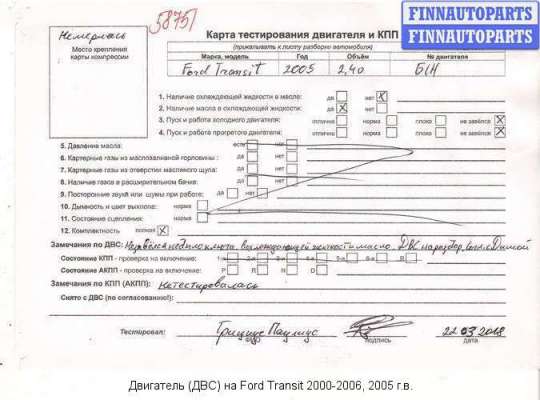 58757
FINNAUTOPARTS
FINNAUTOPARTS
Немерлась
Места крепления
карты компрессии
Карта тестирования двигателя и КПП
(прикалывать к листу разборки автомобиля)
Марка, модель Год Объём № двигателя
Ford Transit 2005 2,40 Б/Н
1. Наличие охлаждающей жидкости в масле: да нет X
2. Наличие масла в охлаждающей жидкости: да X нет
3. Пуск и работа холодного двигателя: отлично норма плохо не завёлся X
4. Пуск и работа прогретого двигателя: отлично норма плохо не завёлся X
5. Давление масла: есть нет
6. Картерные газы из маслозаливной горловины: да нет
7. Картерные газы из отверстия масляного щупа: да нет
8. Наличие газов в расширительном бачке: да нет
9. Посторонние звуки или шумы при работе: да нет
10. Дымность и цвет выхлопа: норма
11. Состояние сцепления: норма
12. Комплектность полная X
Замечания по ДВС:
Состояние КПП - проверка на включение: 1-я 2-я 3-я 4-я 5-я 6-я R
Состояние АКПП - проверка на включение: P R N D
Замечания по КПП (АКПП): Не тестировалась
Снято с ДВС (по согласованию!):
Тестировал: Грицюс Паулюс
ФИО подпись дата
22 03 2018
Двигатель (ДВС) на Ford Transit 2000-2006, 2005 г.в.